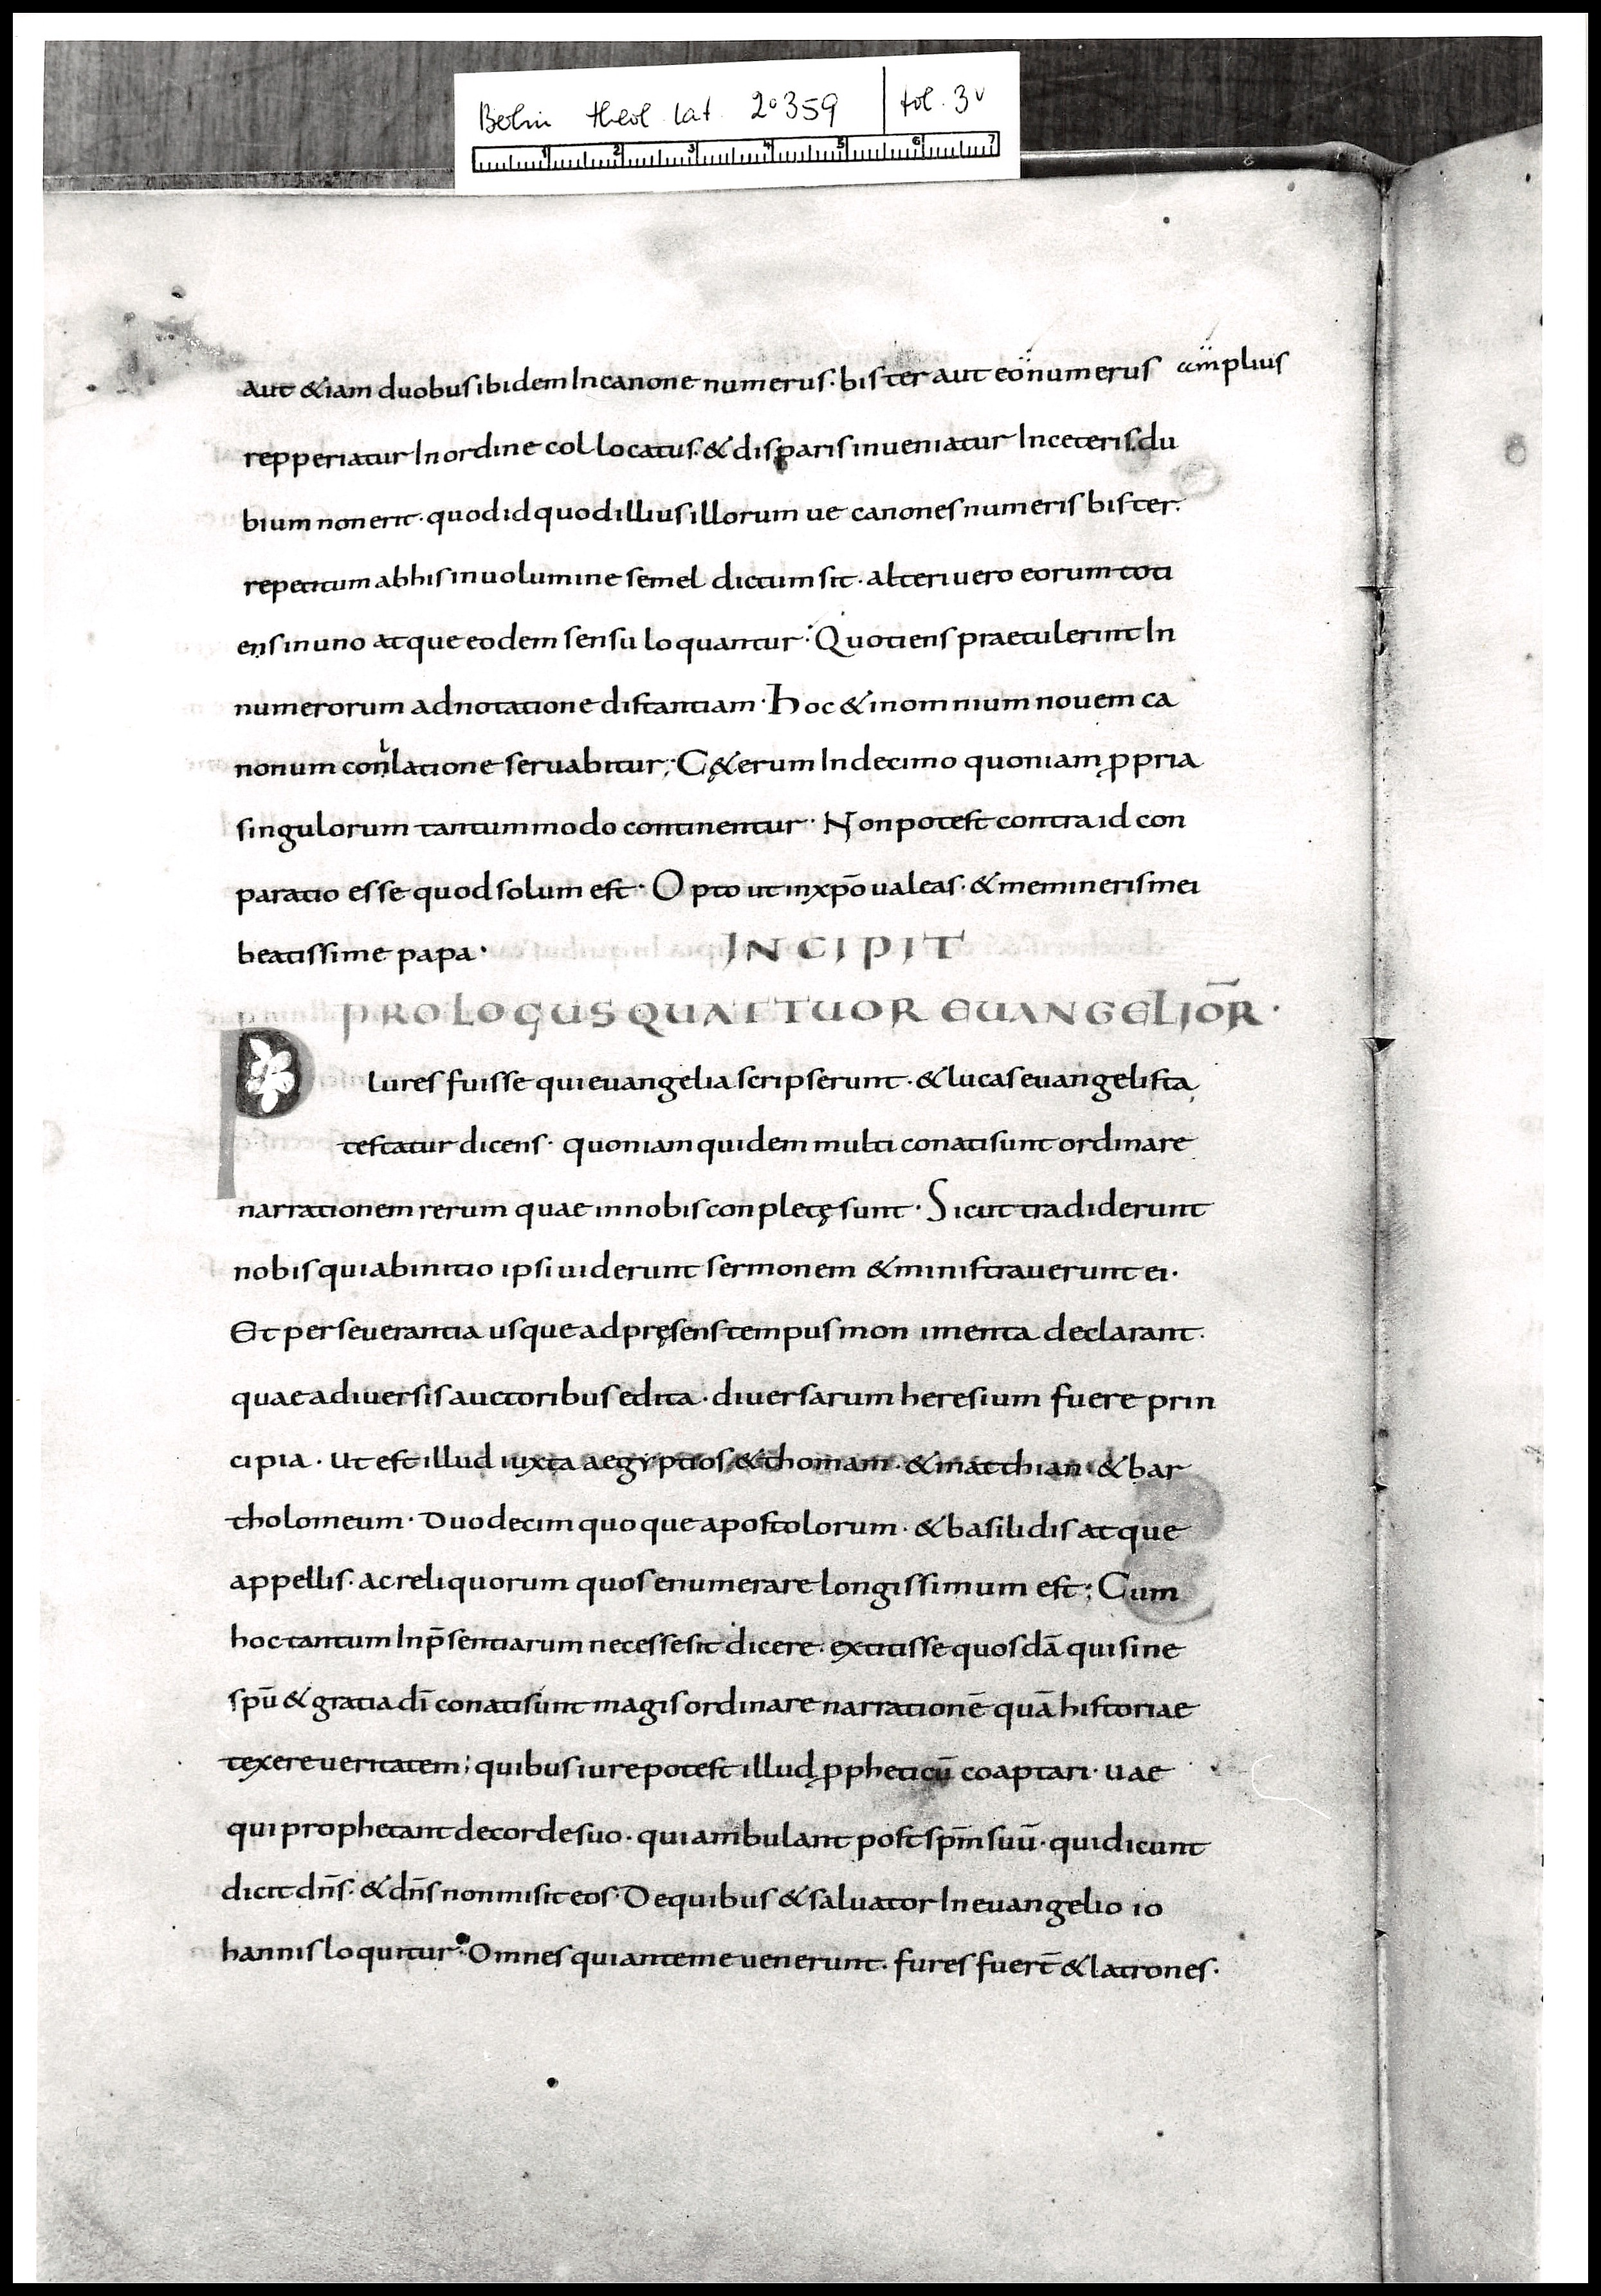 Berlin theol. lat. 2° 359 fol. 3v
1 2 3 4 5 6 7
aut &iam duobus ibidem In canone numerus· bis ter aut eo numerus amplius
repperiatur In ordine collocatus· & disparis inueniatur In ceteris· du
bium non erit· quod id quod illius illorum ue canones numeris bis ter·
repetitum ab his in uolumine semel dictum sit· alteri uero eorum toti
ens in uno atque eodem sensu loquantur· Quotiens praetulerint In
numerorum adnotatione distantiam· Hoc & in omnium nouem ca
nonum conlatione seruabitur; C&erum In decimo quoniam ꝓpria
singulorum tantummodo continentur· Non potest contra id con
paratio esse quod solum est· Opto ut in xp̄o ualeas· & memineris mei
beatissime papa· INCIPIT
PROLOGUS QUATTUOR EUANGELIOR̄·
Plures fuisse qui euangelia scripserunt· & lucas euangelista,
testatur dicens· quoniam quidem multi conati sunt ordinare
narrationem rerum quae in nobis conpletę sunt· Sicut tradiderunt
nobis qui ab initio ipsi uiderunt sermonem & ministrauerunt ei·
Et perseuerantia usque ad pręsens tempus monimenta declarant·
quae a diuersis auctoribus edita· diuersarum heresium fuere prin
cipia· ut est illud iuxta aegyptios & thomam· & matthian· & bar
tholomeum· Duodecim quoque apostolorum· & basilidis atque
appellis· ac reliquorum quos enumerare longissimum est; Cum
hoc tantum In p̄sentiarum necesse sit dicere· extitisse quosdā qui sine
spū & gratia dī conati sunt magis ordinare narrationē quā historiae
texere ueritatem; quibus iure potest illud ꝓpheticū coaptari· uae
qui prophetant de corde suo· qui ambulant post sp̄m suū· qui dicunt
dicit dn̄s· & dn̄s non misit eos· De quibus & saluator In euangelio io
hannis loquitur· Omnes qui ante me uenerunt· fures fuer̄t & latrones·